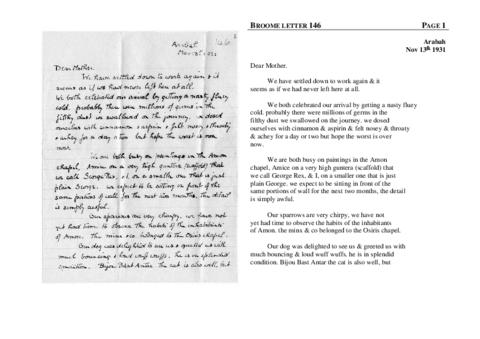 146
Arabah
Nov 13th 1931
Dear Mother.
We have settled down to work again & it
seems as if we had never left here at all.
We both celebrated our arrival by getting a nasty fluey
cold. probably there were millions of germs in the
filthy dust we swallowed on the journey. we dosed
ourselves with cinnamon & aspirin & felt nosey & throaty
& achey for a day or two but hope the worst is now
over.
We are both busy on paintings in the Amon
chapel, Amice on a very high guntera (scaffold) that
we call George Rex, & I, on a smaller one that is just
plain George. we expect to be sitting in front of the
same portions of wall for the next two months, the detail
is simply awful.
Our sparrows are very chirpy, we have not
yet had time to observe the habits of the inhabitants
of Amon. the minx & co belonged to the Osiris chapel.
Our dog was delighted to see us & greeted us with
much bouncing & loud wuff wuffs, he is in splendid
condition. Bijou Bast Antar the cat is also well, but
BROOME LETTER 146 PAGE 1
Arabah
Nov 13th 1931
Dear Mother.
We have settled down to work again & it
seems as if we had never left here at all.
We both celebrated our arrival by getting a nasty fluey
cold. probably there were millions of germs in the
filthy dust we swallowed on the journey. we dosed
ourselves with cinnamon & aspirin & felt nosey & throaty
& achey for a day or two but hope the worst is over
now.
We are both busy on paintings in the Amon
chapel, Amice on a very high guntera (scaffold) that
we call George Rex, & I, on a smaller one that is just
plain George. we expect to be sitting in front of the
same portions of wall for the next two months, the detail
is simply awful.
Our sparrows are very chirpy, we have not
yet had time to observe the habits of the inhabitants
of Amon. the minx & co belonged to the Osiris chapel.
Our dog was delighted to see us & greeted us with
much bouncing & loud wuff wuffs, he is in splendid
condition. Bijou Bast Antar the cat is also well, but